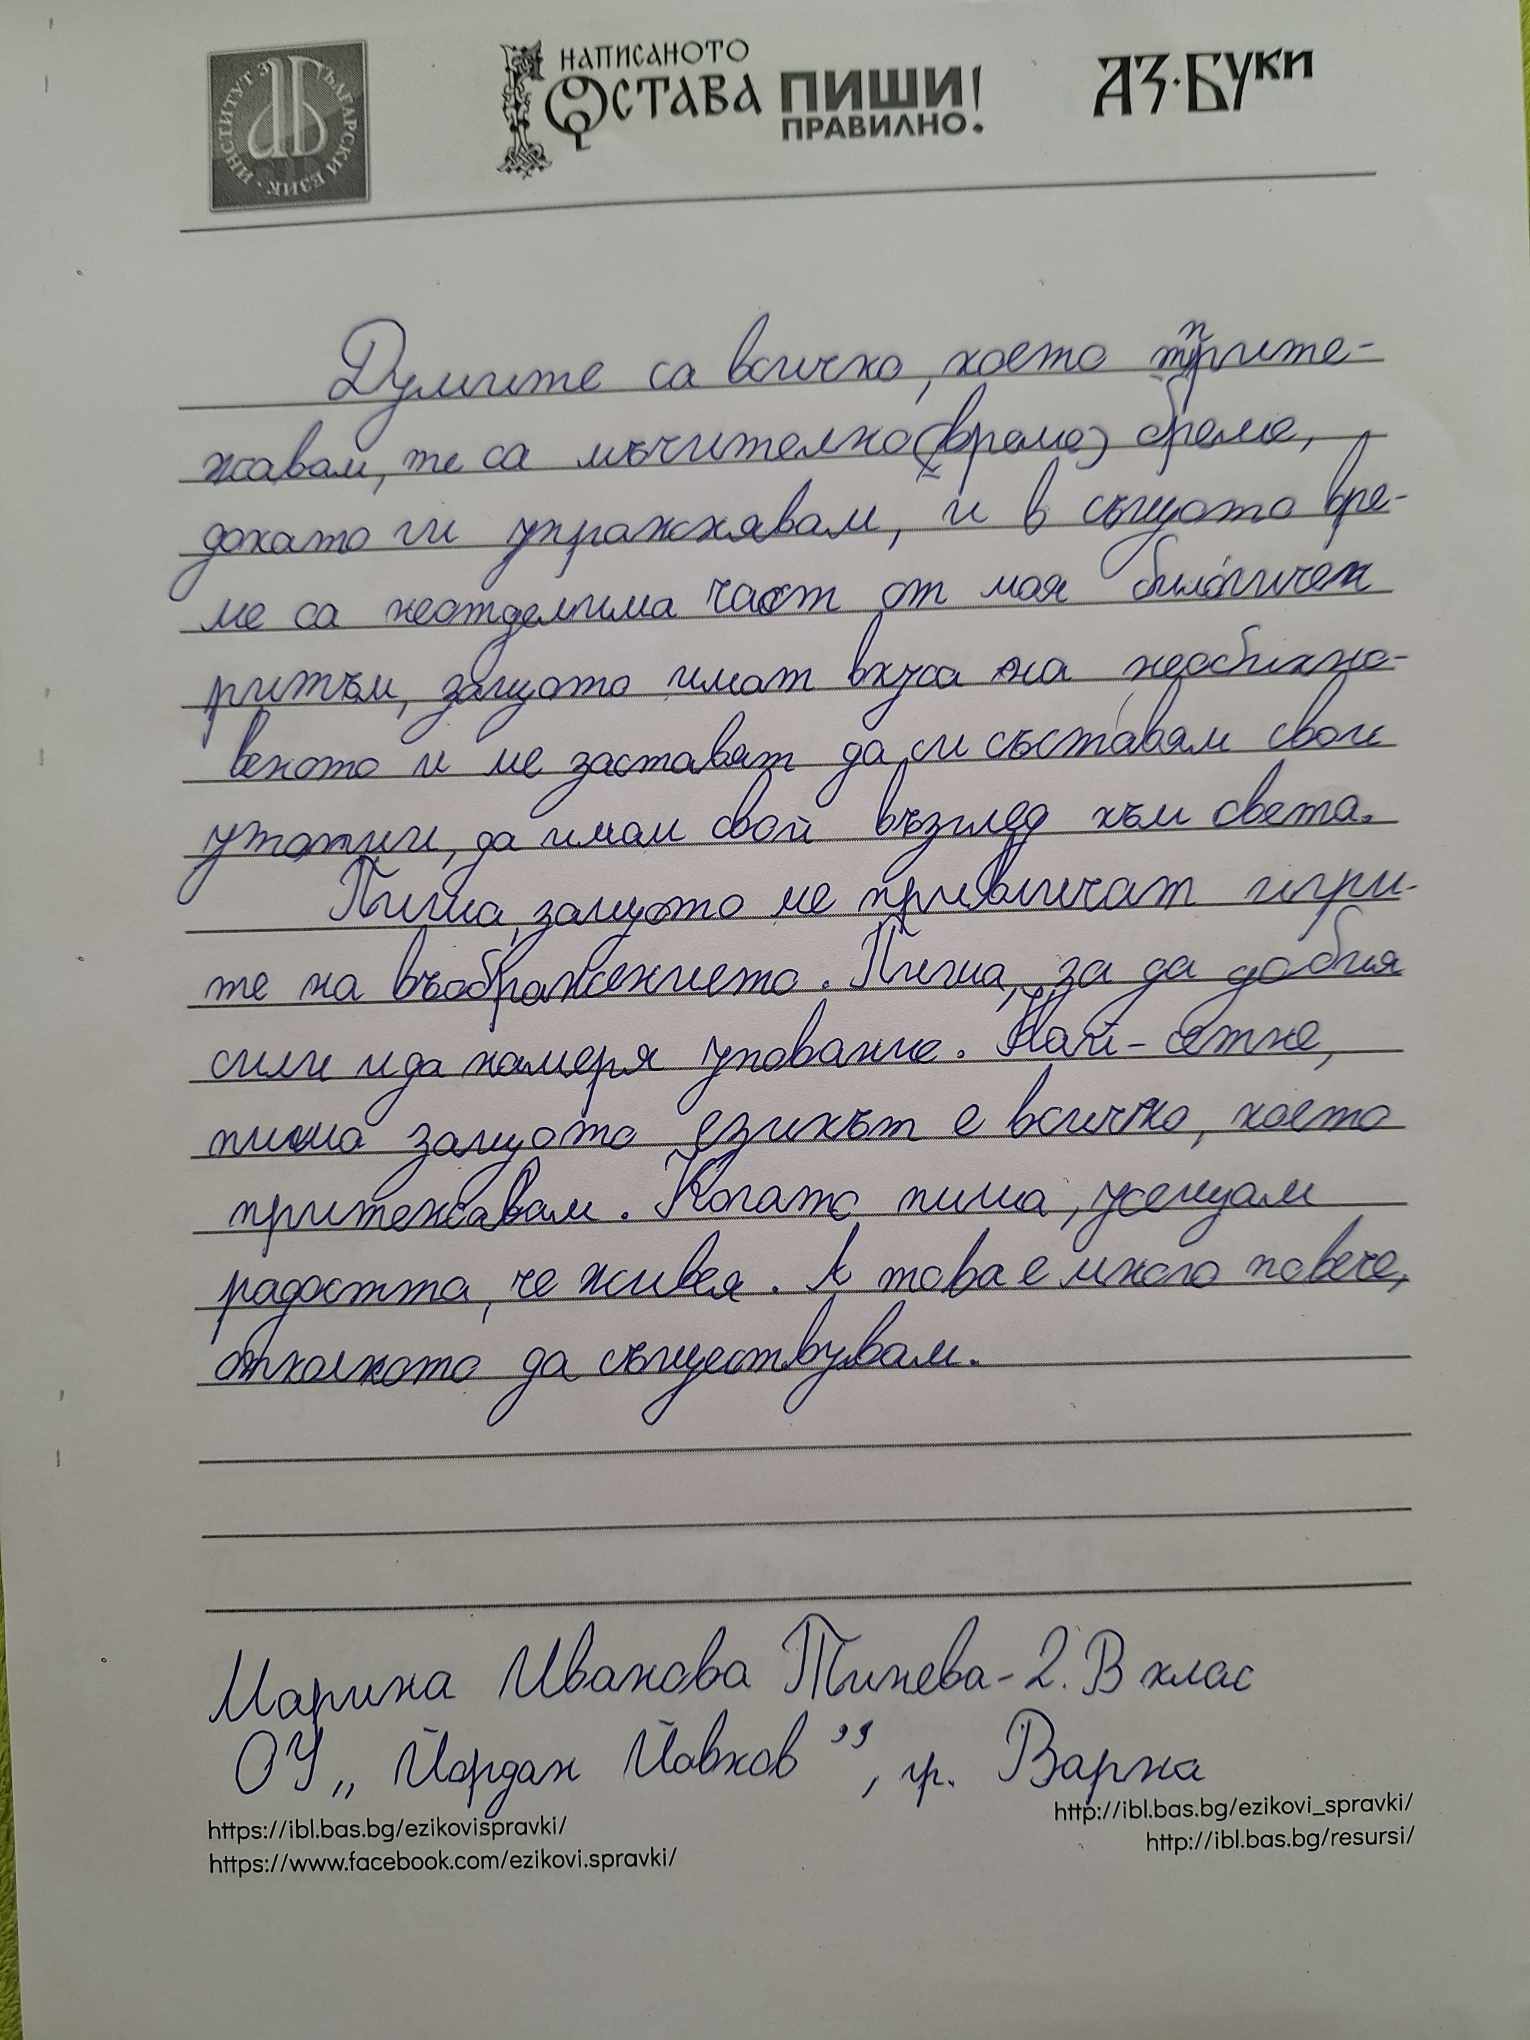 ИНСТИТУТ ЗА БЪЛГАРСКИ ЕЗИК
НАПИСАНОТО
ОСТАВА ПИШИ!
ПРАВИЛНО.
АЗ·БУКИ
Думите са всичко, което прите-
жавам, те са мъчително (време) бреме,
докато ги упражнявам, и в същото вре-
ме са неотделима част от моя билогичен
ритъм, защото имат вкуса на необикно-
веното и ме заставят да си съставям свои
утопии, да имам свой възглед към света.
Пиша, защото ме привличат игри-
те на въображението. Пиша, за да добия
сили и да намеря упование. Най-сетне,
пиша защото езикът е всичко, което
притежавам. Когато пиша, усещам
радостта, че живея. А това е много повече,
отколкото да съществувам.
Марина Иванова Тинева - 2. В клас
ОУ „Йордан Йовков”, гр. Варна
https://ibl.bas.bg/ezikovispravki/
http://ibl.bas.bg/ezikovi_spravki/
https://www.facebook.com/ezikovi.spravki/
http://ibl.bas.bg/resursi/